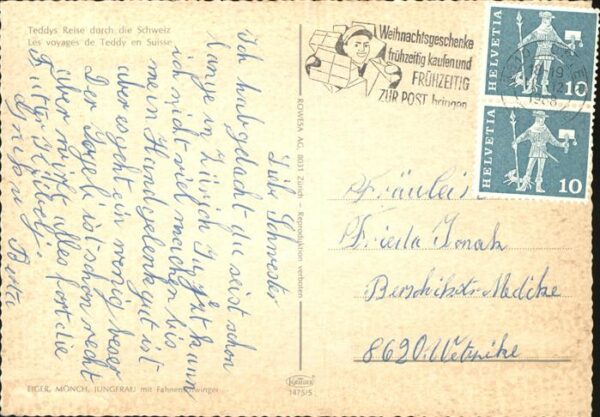 Teddys Reise durch die Schweiz
Les voyages de Teddy en Suisse
Liebe Schwester
Ich hab gedacht du seist schon
lange in Zürich Jetzt kann
ich nicht viel machen bis
me in Handgelenk gut ist
aber es geht ein wenig besser
Der ist schon recht
über nicht alles fort die
Grüsse
Berta
EIGER, MÖNCH, JUNGFRAU mit Fahnenschwinger
ROWESA AG, 8031 Zürich - Reproduktion verboten
1475/5
Weihnachtsgeschenke
frühzeitig kaufen und
FRÜHZEITIG
ZUR POST bringen
HELVETIA
10
HELVETIA
10
Fräulein
Frieda
8620 Wetzike